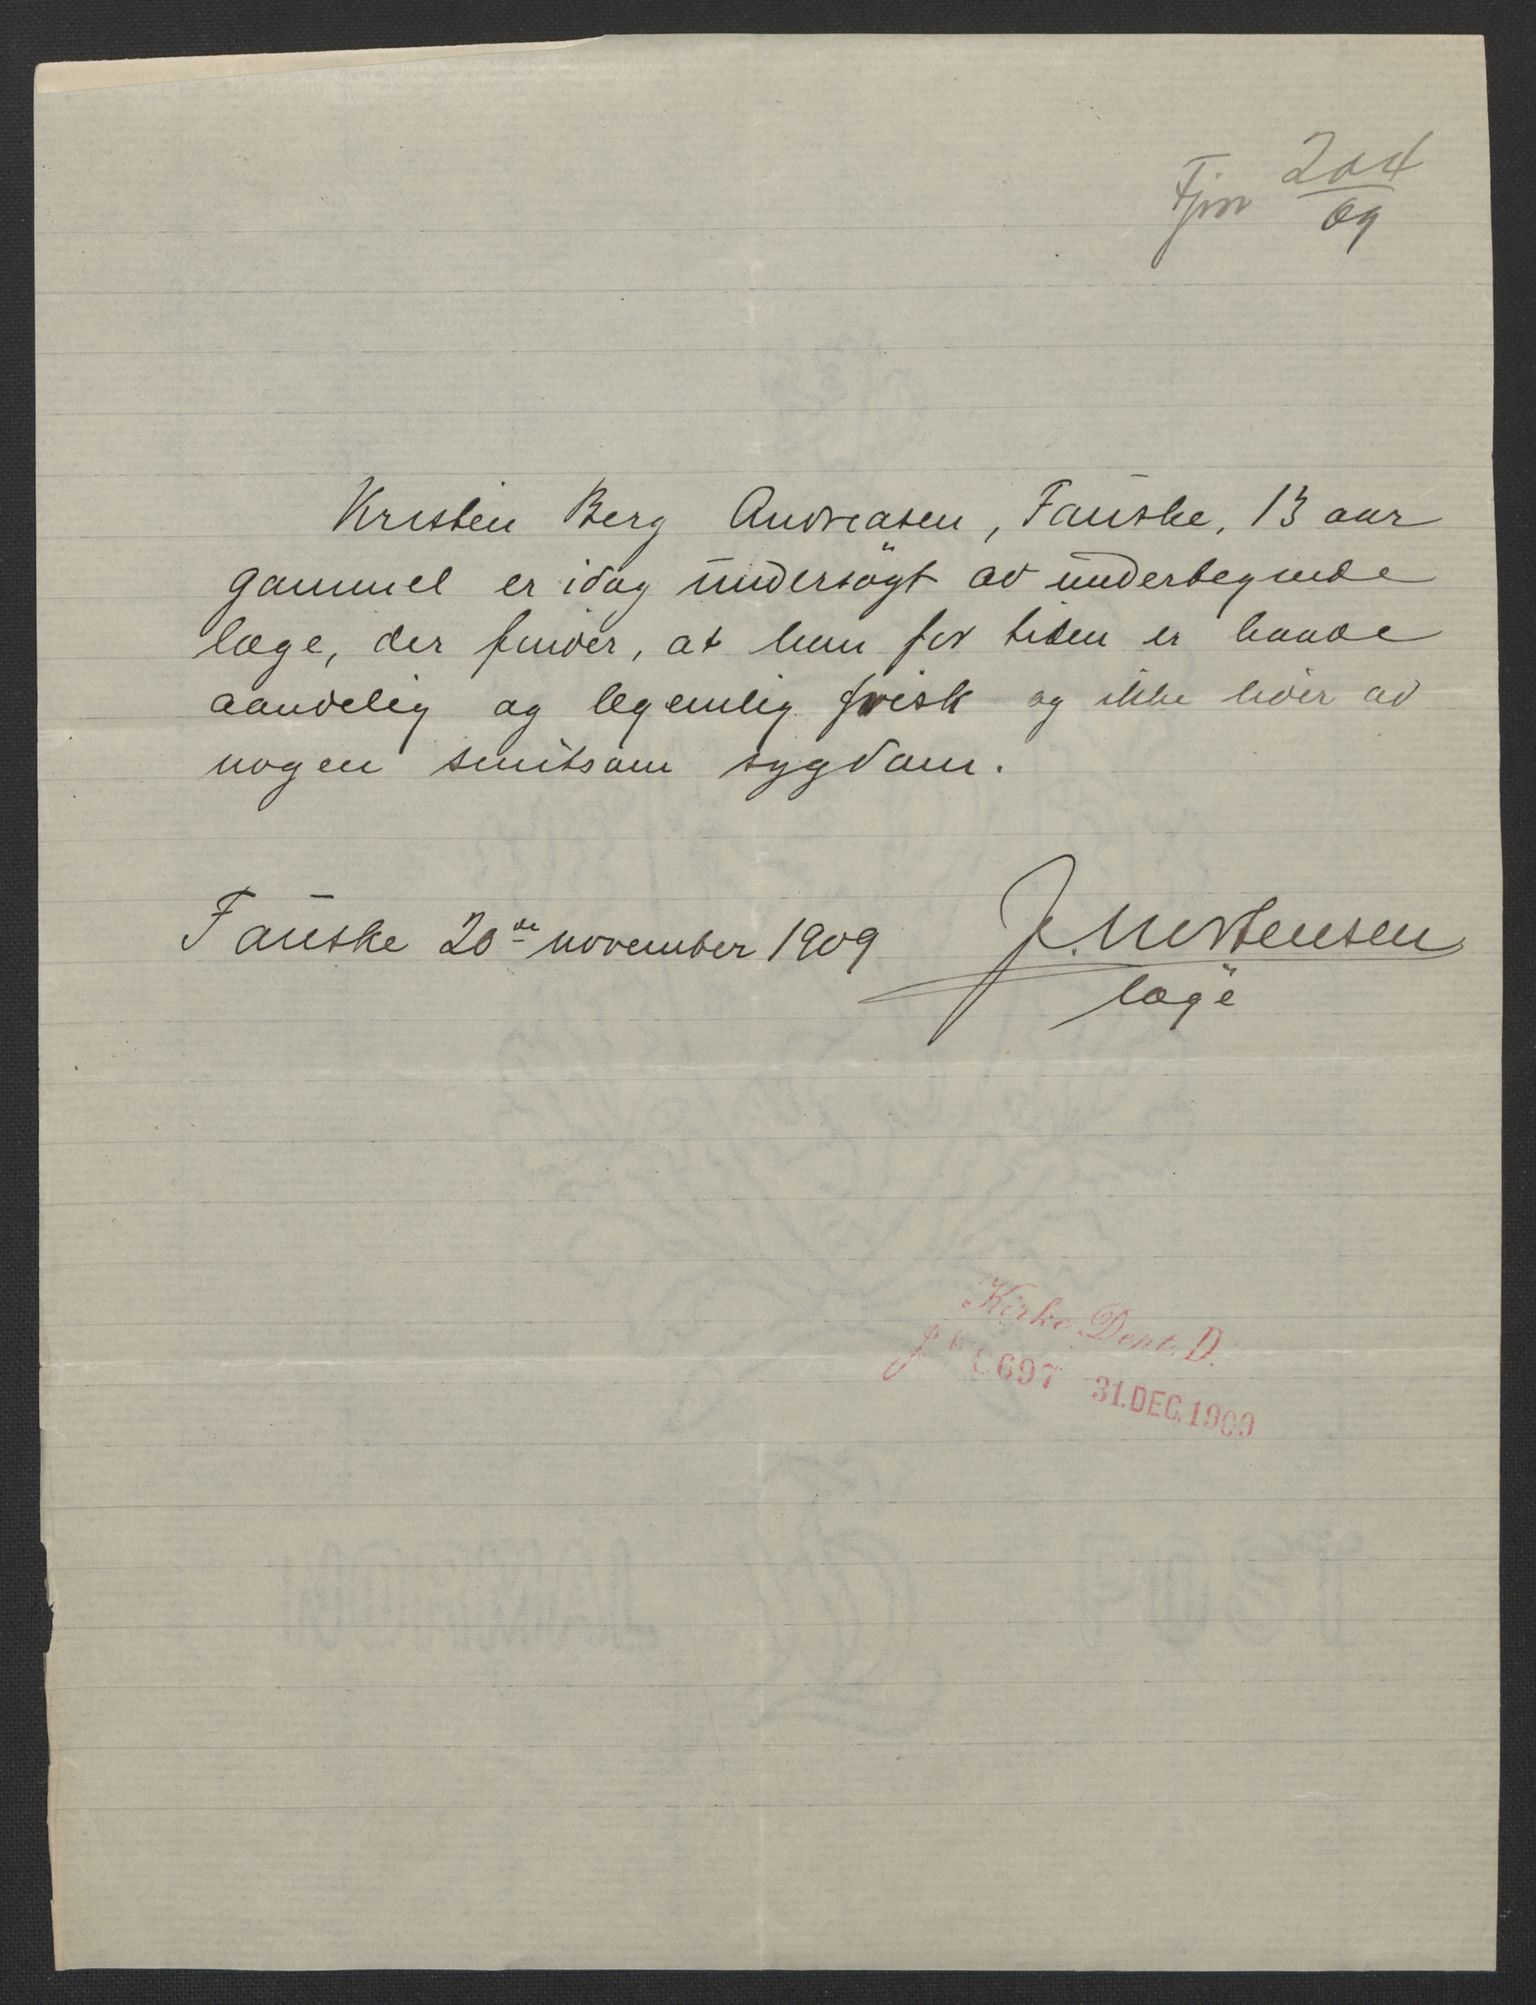 Fjm 204/09
Kristen Berg Andreasen, Fauske, 13 aar
gammel er idag undersögt av undertegnede
læge, der finder, at hun for tiden er baade
aandelig og legemlig frisk og ikke lider av
nogen smitsom sygdom.
Fauske 20de november 1909
J. Mortensen
læge
Kirke Dept. D.
697 31.DEC.1909